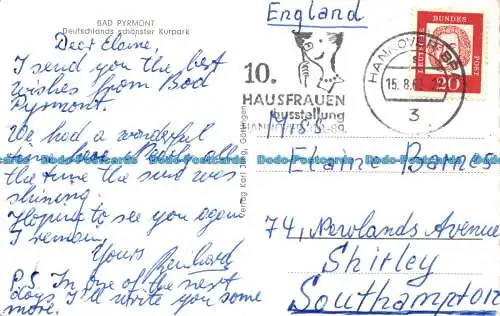 BAD PYRMONT
Deutschlands schönster Kurpark
Dear Elaine,
I send you the best
wishes from Bad
Pyrmont.
We had a wonderful
time here. Nearly all
the time the sun was
shining.
Hoping to see you again
I remain,
Yours Reinhard
P.S. In one of the next
days I'll write you some
more.
Verlag Karl Jung, Göttingen
England
10.
HAUSFRAUEN
ausstellung
HANNOVER
HANNOVER
15.8.6
3
DEUTSCHE
BUNDES
POST
20
Miss
Elaine Barnes
74, Newlands Avenue
Shirley
Southampton
Bodo-Postcards